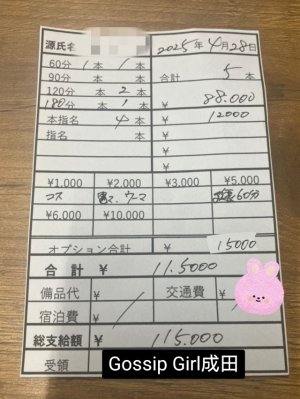 源氏名 2025年4月28日
60分 1本 1本
90分 本 合計 5本
120分 本 2本 ¥ 88.000
180分 本 1本 ¥ 12000
本指名 4本 ¥
指名 本 ¥
¥
¥
¥1,000 ¥2,000 ¥3,000 ¥5,000
コス 60分
¥6,000 ¥10,000
オプション合計 ¥ 15000
合計 ¥ 11.5000
備品代 ¥ 交通費 ¥
宿泊費 ¥
総支給額 ¥ 115.000
受領
Gossip Girl成田